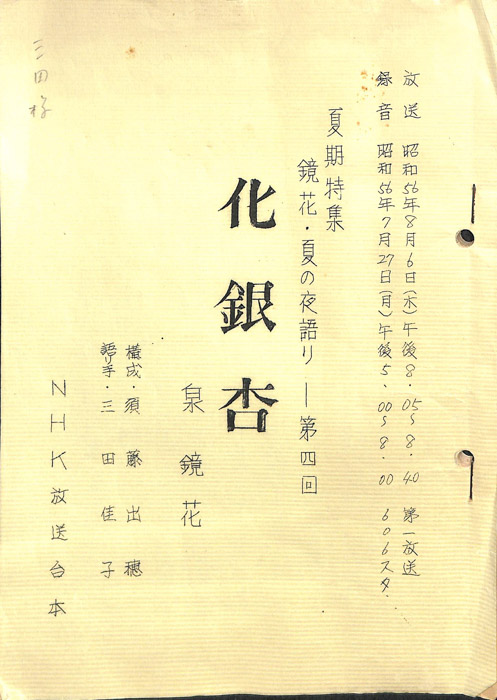 放送 昭和56年8月6日(木)午後8.05〜8.40 第一放送
録音 昭和56年7月27日(月)午後5.00〜8.00 606スタ.
夏期特集
鏡花・夏の夜語り―第四回
化銀杏
泉鏡花
構成・須藤出穂
語り手・三田佳子
NHK放送台本
三田様